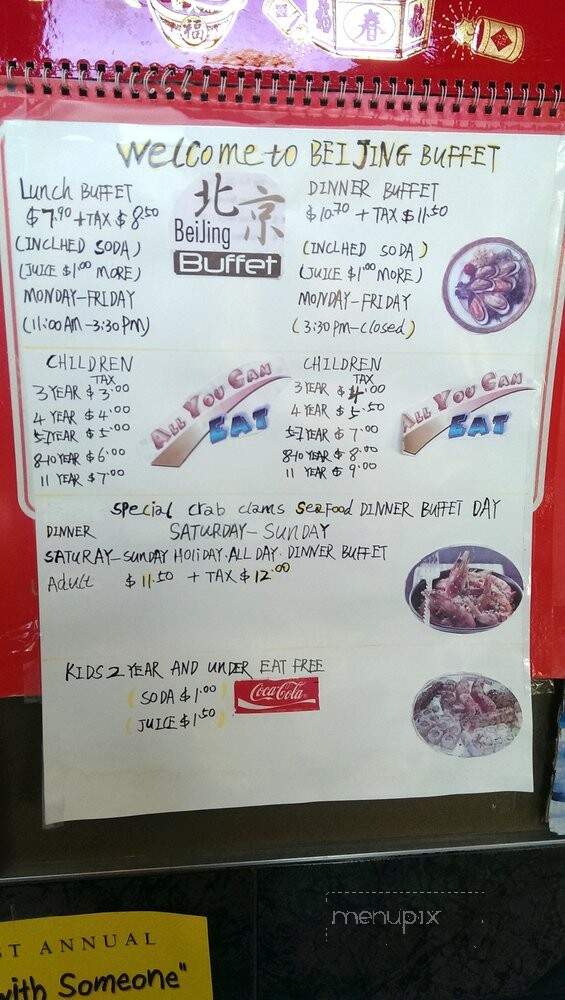 福
春
福
Welcome to BEIJING BUFFET
Lunch BUFFET
$7.90 + TAX $8.50
(INCLHED SODA)
(JUICE $1.00 MORE)
MONDAY-FRIDAY
(11:00AM-3:30PM)
北京
BeiJing
Buffet
DINNER BUFFET
$10.70 + TAX $11.50
(INCLHED SODA)
(JUICE $1.00 MORE)
MONDAY-FRIDAY
(3:30PM-Closed)
CHILDREN
TAX
3 YEAR $3.00
4 YEAR $4.00
5-7 YEAR $5.00
8-10 YEAR $6.00
11 YEAR $7.00
ALL YOU CAN
EAT
CHILDREN
TAX
3 YEAR $4.00
4 YEAR $5.50
5-7 YEAR $7.00
8-10 YEAR $8.00
11 YEAR $9.00
ALL YOU CAN
EAT
Special crab clams Seafood DINNER BUFFET DAY
DINNER SATURDAY-SUNDAY
SATURAY-SUNDAY HOLIDAY.ALL DAY.DINNER BUFFET
Adult $11.50 + TAX $12.00
KIDS 2 YEAR AND UNDER EAT FREE
(SODA $1.00)
(JUICE $1.50)
Coca-Cola
menupix
ST ANNUAL
with Someone"